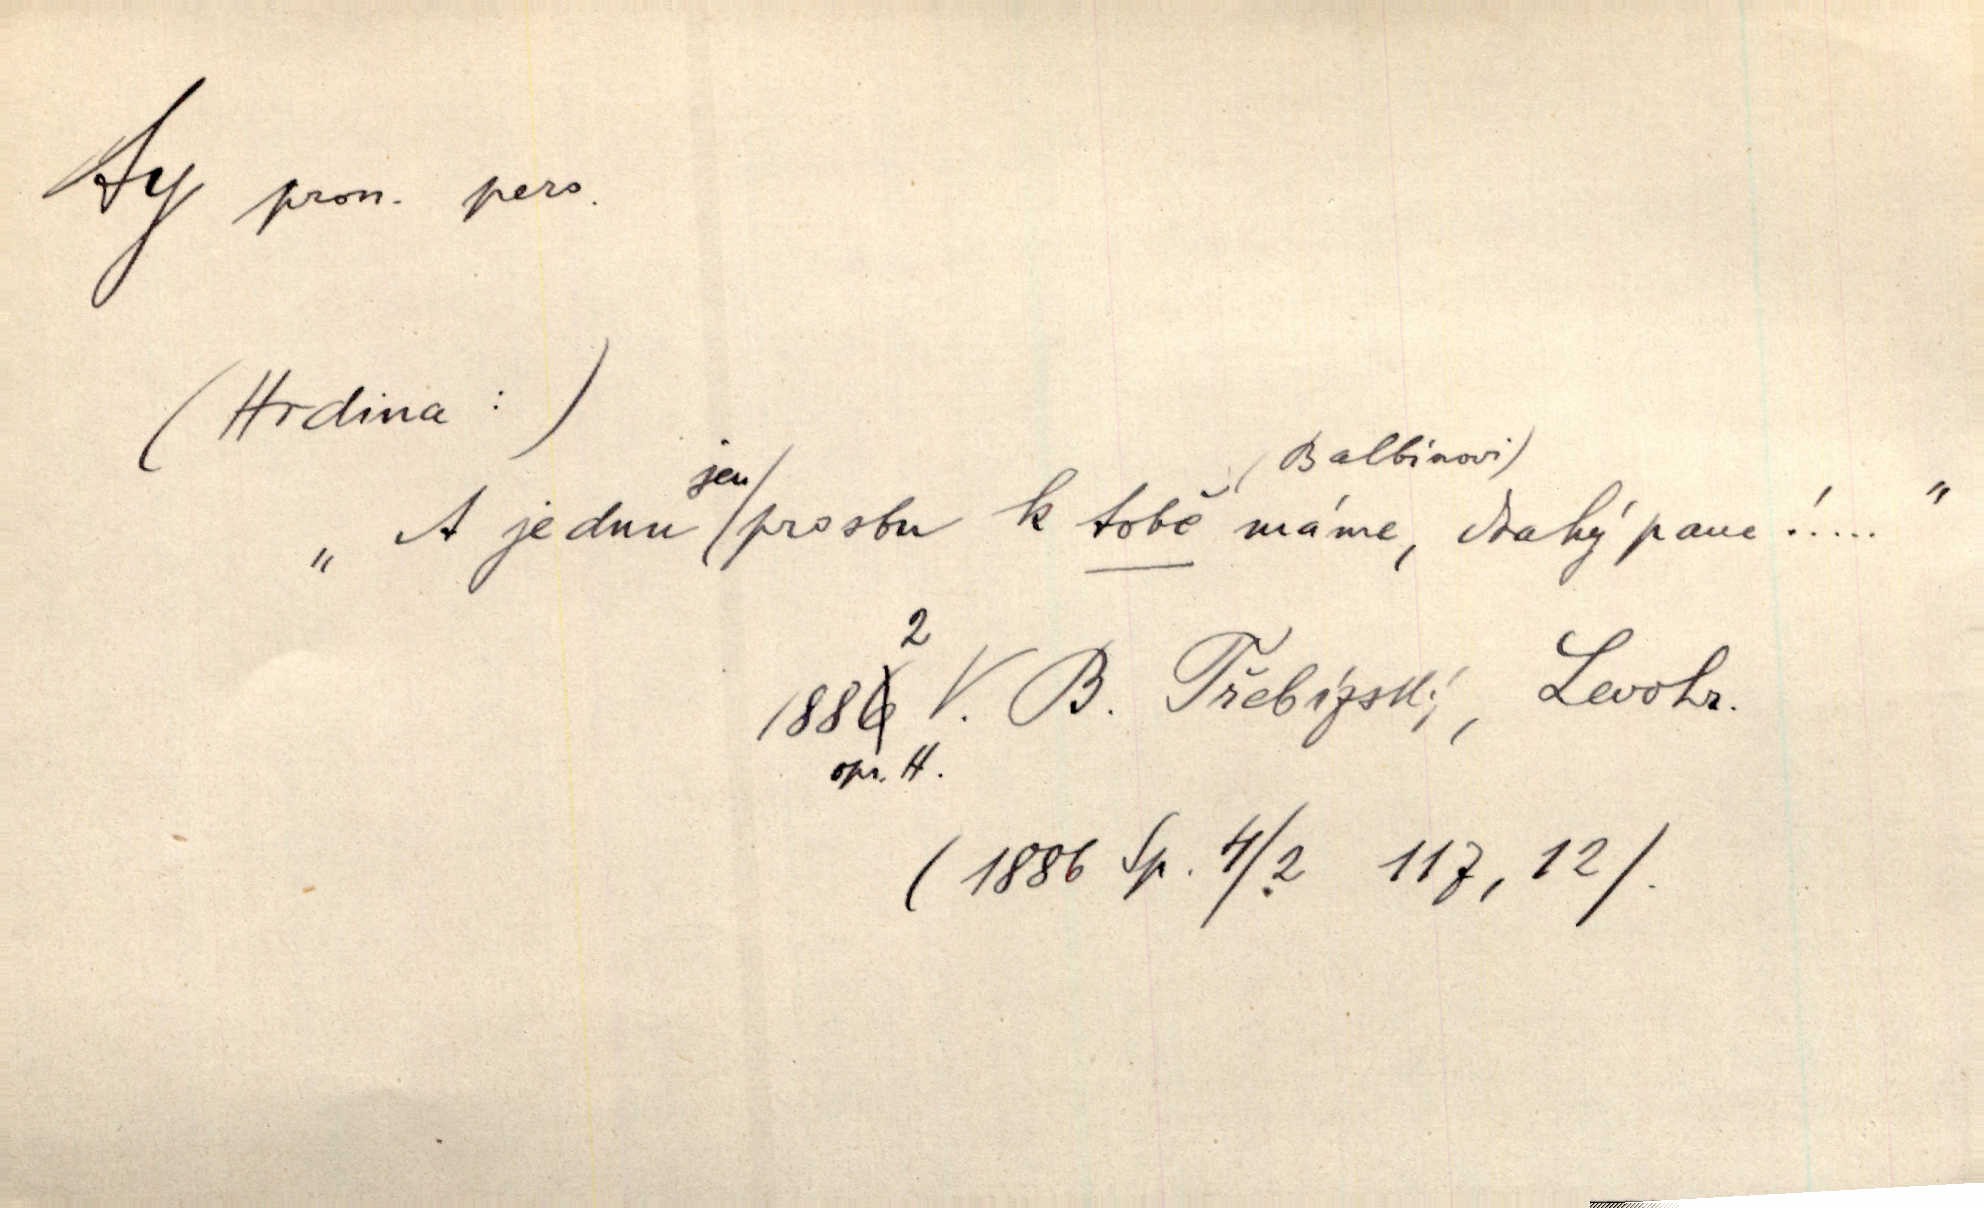 Ty pron. pers.
(Hrdina :)
„ A jednu jen prosbu k tobě (Balbínovi) máme, drahý pane!....."
1882 V. B. Třebízský, Levohr.
opr. H.
(1886 Sp. 4/2 117, 12).